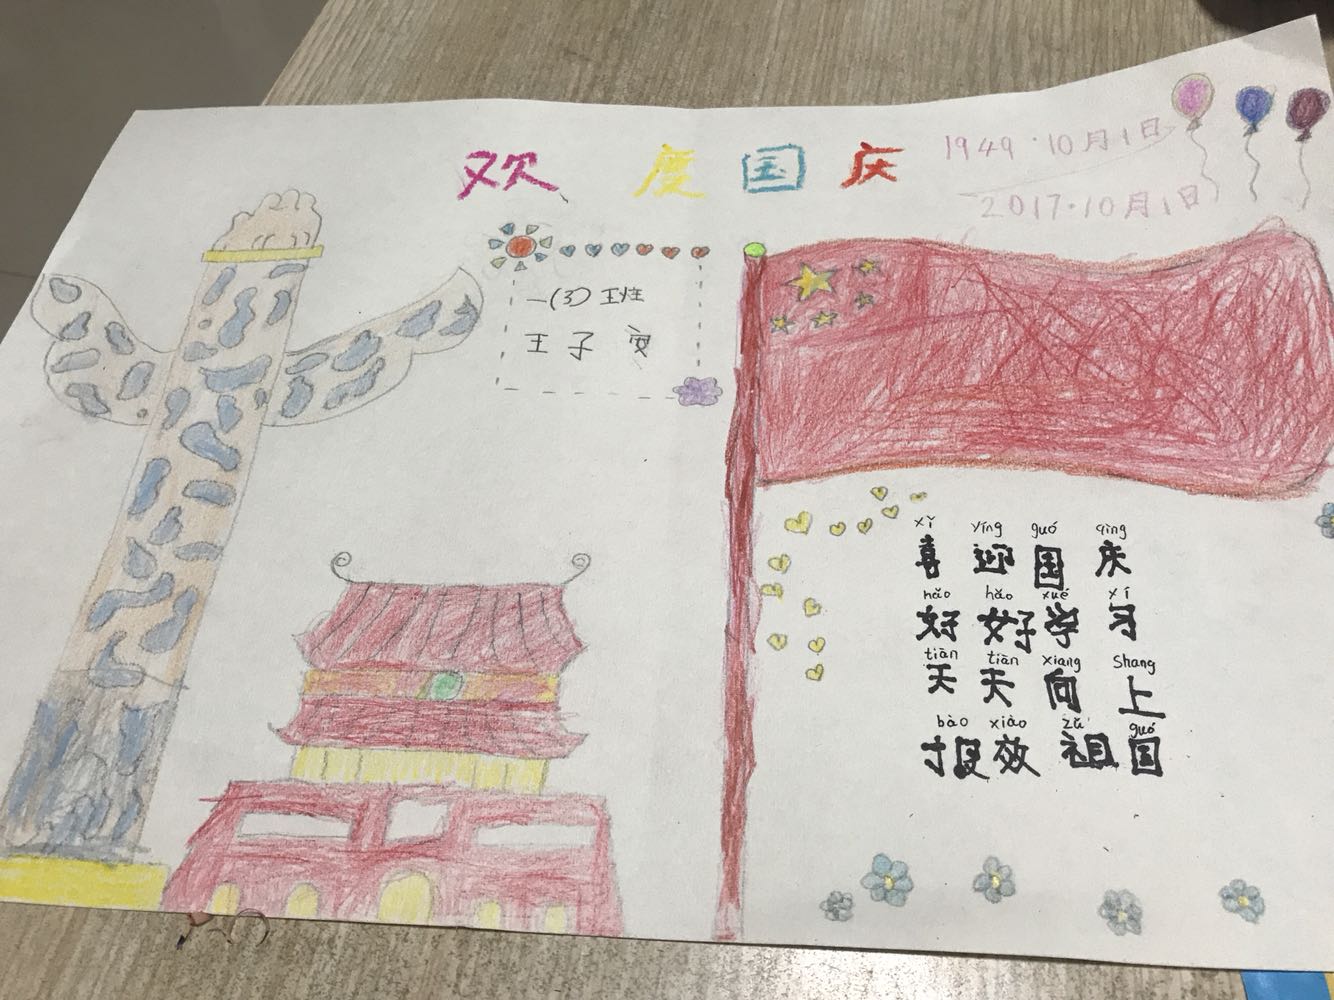 欢度国庆
1949·10月1日
2017·10月1日
一(3)班
王子安
xǐ yíng guó qìng
喜迎国庆
hǎo hǎo xué xí
好好学习
tiān tiān xiang shang
天天向上
bào xiào zǔ guó
报效祖国